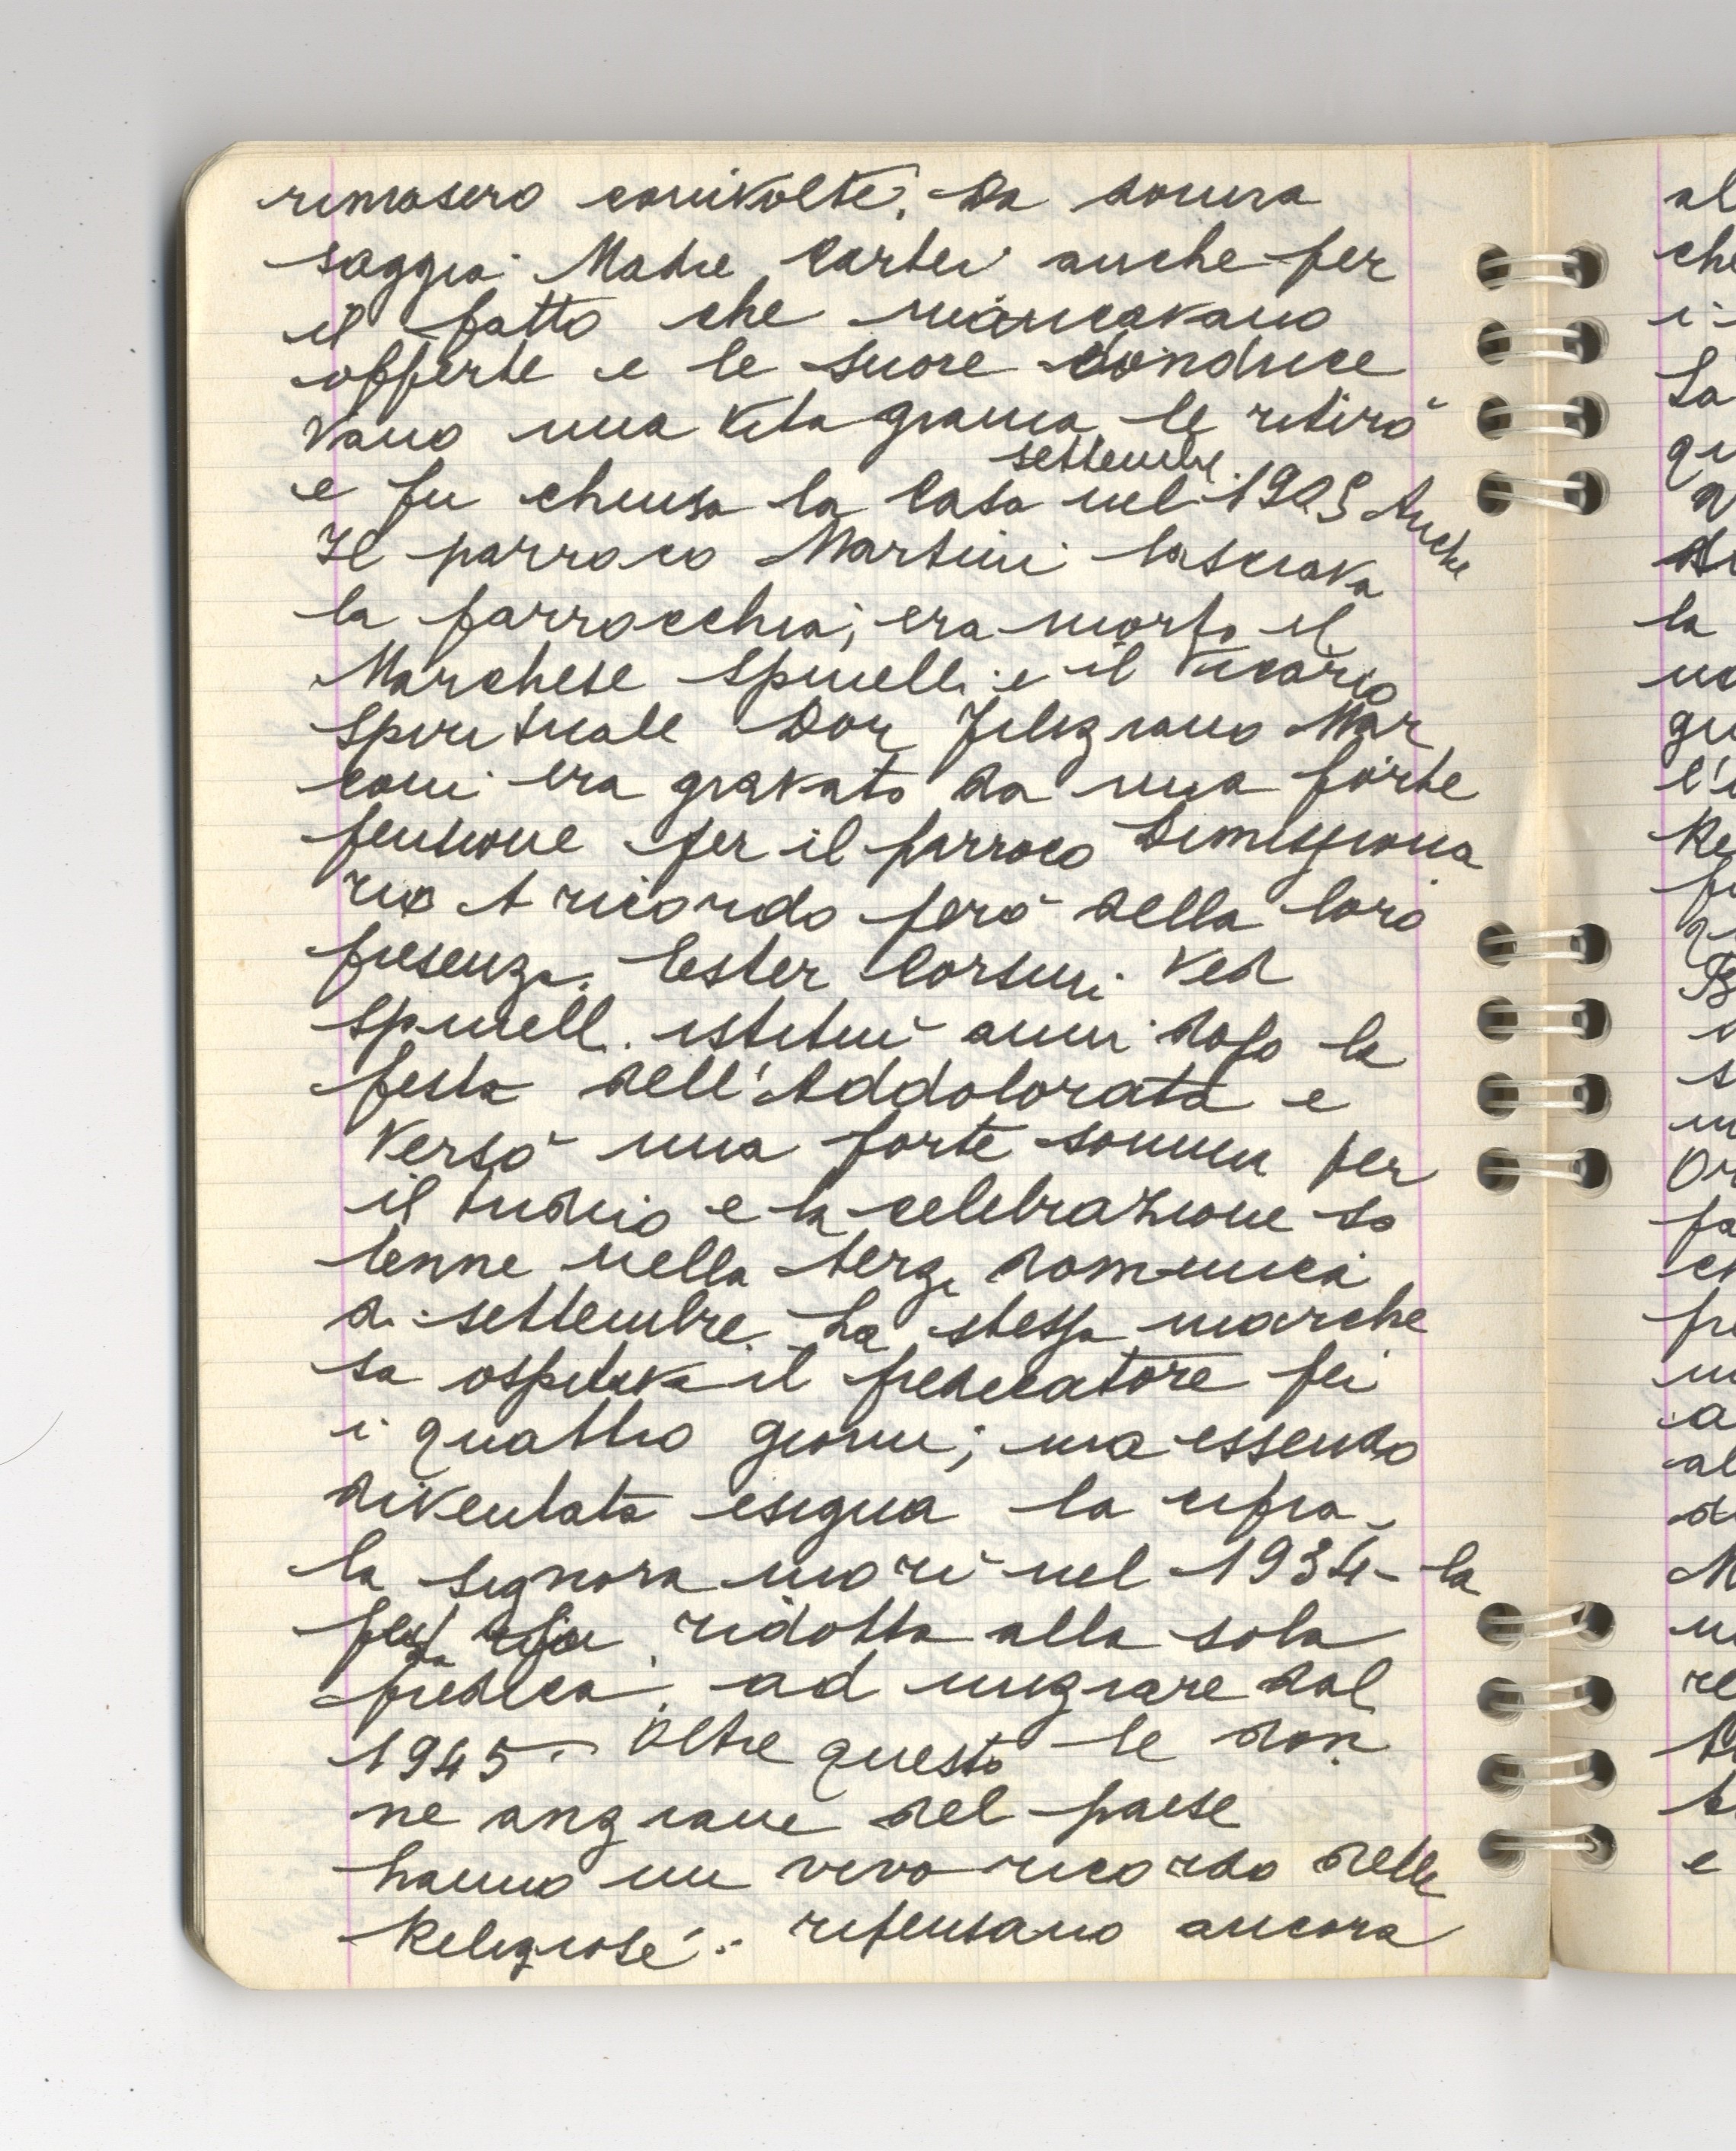 rimasero coinvolte. Da donna
saggia Madre Cartei anche per
il fatto che mancavano
offerte e le suore conduce
vano una vita grama le ritirò
settembre
e fu chiusa la Casa nel 1905 Anche
Il parroco Martini lasciava
la parrocchia; era morto il
Marchese Spinelli e il Vicario
Spirituale Don Feliziano Mar
coni era gravato da una forte
pensione per il parroco Dimissiona
rio A ricordo però della loro
presenza. Ester Corsini Ved
Spinelli istituì anni dopo la
festa dell'Addolorata e
versò una forte somma per
il triduo e la celebrazione so
lenne nella terza domenica
di settembre. La stessa marche
sa ospitava il predicatore pei
i quattro giorni; ma essendo
diventata esigua la cifra -
la signora morì nel 1934 - la
festa ridotta alla sola
predica. ad iniziare dal
1945. Oltre questo le don
ne anziane del paese
hanno un vivo ricordo delle
Religiose: ripensano ancora